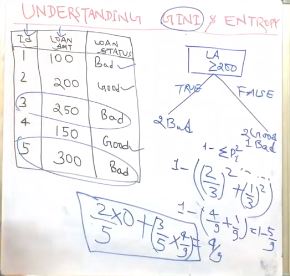 UNDERSTANDING GINI & ENTROPY
Id LOAN AMT LOAN STATUS
1 100 Bad
2 200 Good
3 250 Bad
4 150 Good
5 300 Bad
LA
≥250
TRUE FALSE
2Bad
2Good
1Bad
1 - ΣPi²
1-((2/3)² + (1/3)²)
1-(4/9 + 1/9) = 1-5/9
2/5 × 0 + (3/5 × 4/9) = 4/9